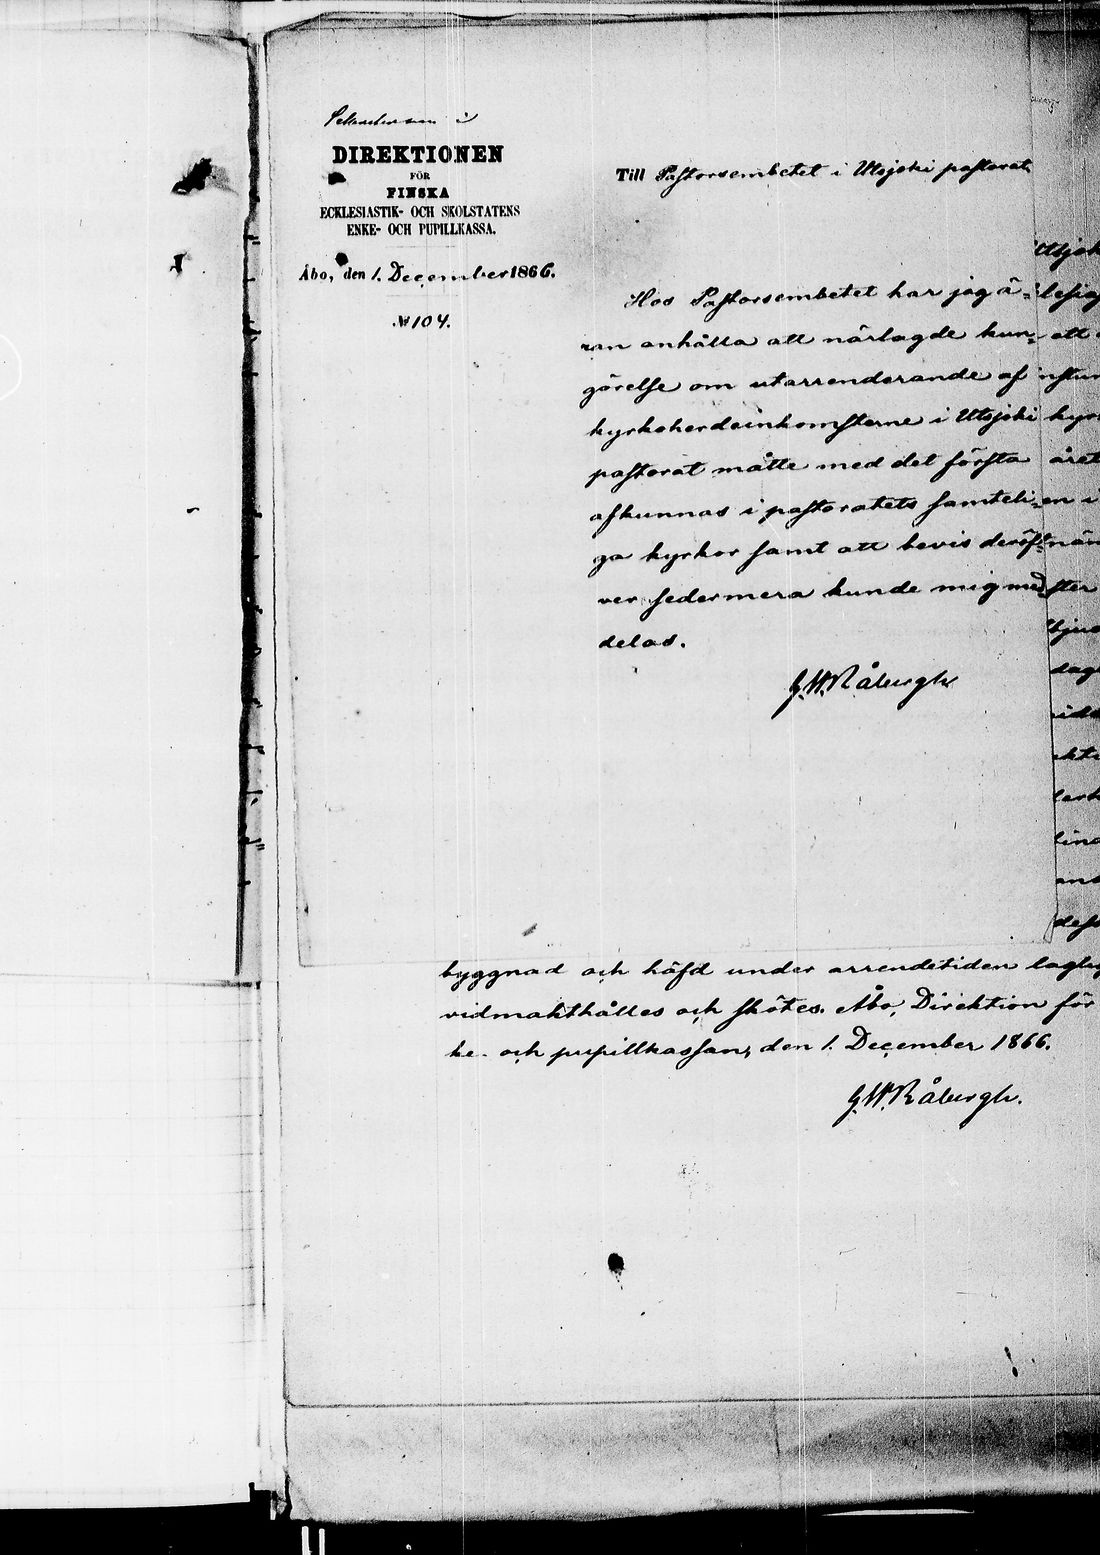 Sekreteraren i
DIREKTIONEN
FÖR
FINSKA
ECKLESIASTIK- OCH SKOLSTATENS
ENKE- OCH PUPILLKASSA.
Åbo, den 1. December 1866.
№ 104.
Till Pastorsembetet i Utsjoki pastorat
Hos Pastorsembetet har jag ä-
ran anhålla att närlagde kun-
görelse om utarrenderande af
kyrkoherdeinkomsterne i Utsjoki
pastorat måtte med det första
afkunnas i pastoratets samteli-
ga kyrkor samt att bevis deröf-
ver sedermera kunde mig med
delas.
G.W. Råbergh
byggnad och häfd under arrendetiden
vidmakthålles och skötes. Åbo, Direktion för
ke- och pupillkassan, den 1. December 1866.
G.W. Råbergh.